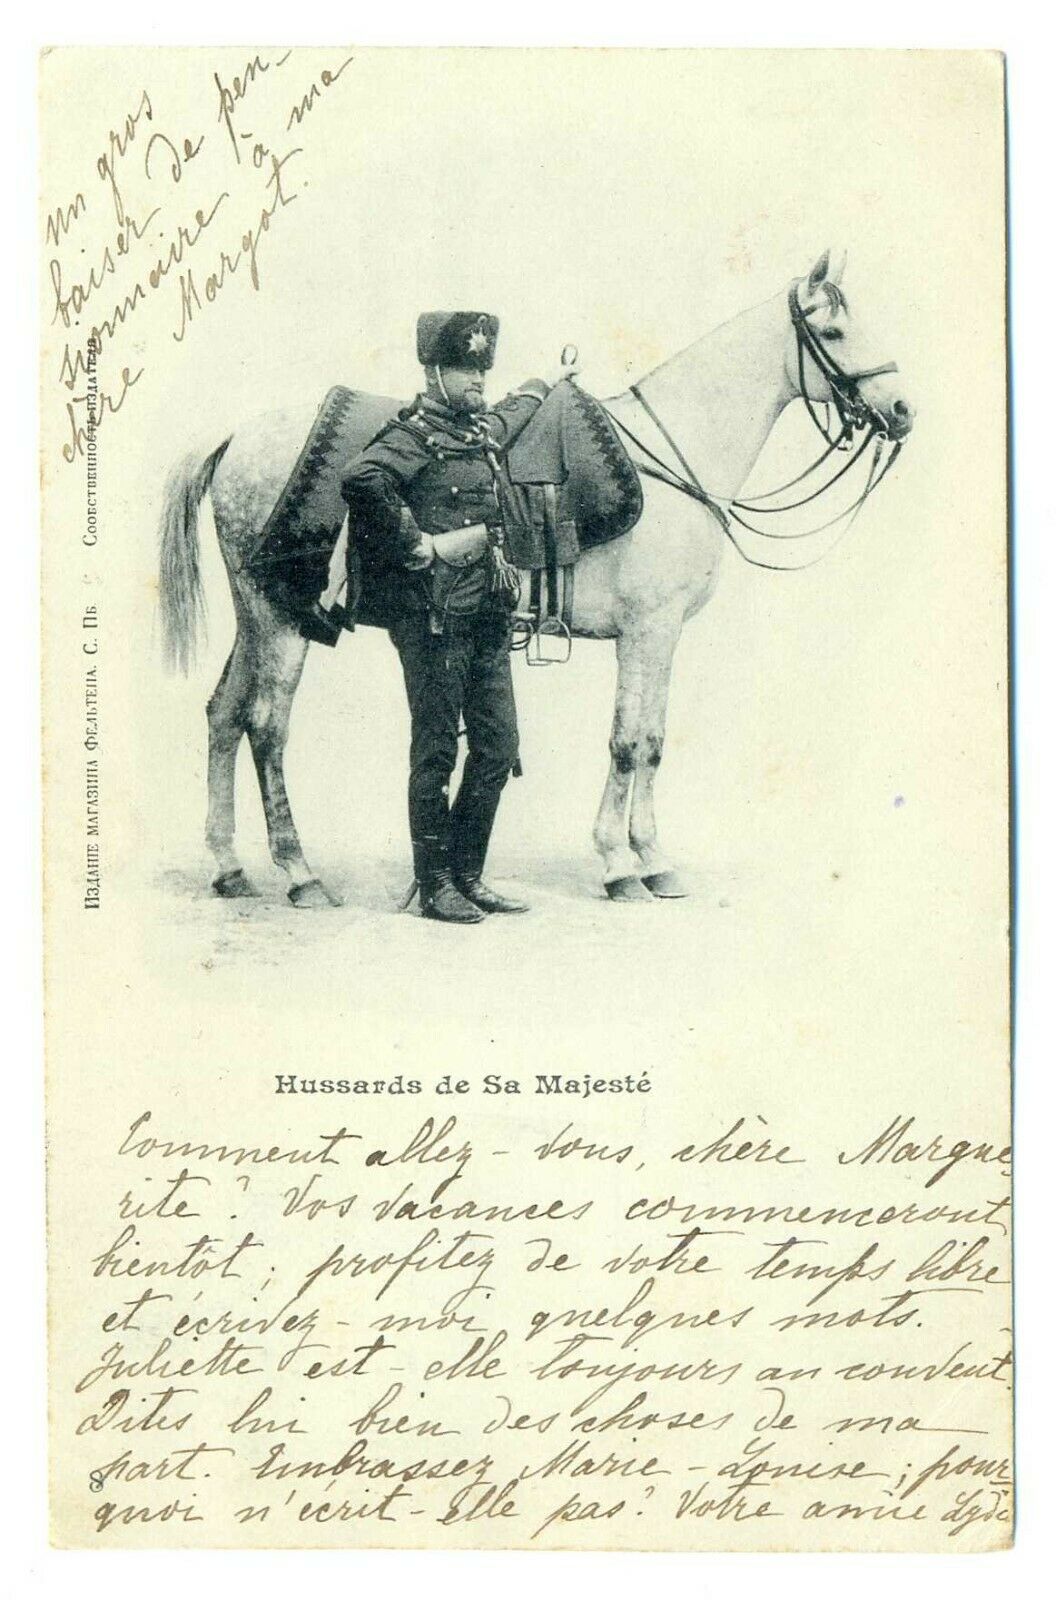 un gros
baiser de pen-
sionnaire à ma
chère Margot.
Изданіе магазина Фельтена. С. Пб Собственность издателя
Hussards de Sa Majesté
Comment allez-vous, chère Margue-
rite? Vos vacances commenceront
bientôt; profitez de votre temps libre
et écrivez-moi quelques mots.
Juliette est-elle toujours au couvent.
Dites lui bien des choses de ma
part. Embrassez Marie-Louise; pour-
quoi n'écrit-elle pas? Votre amie Lydie
8